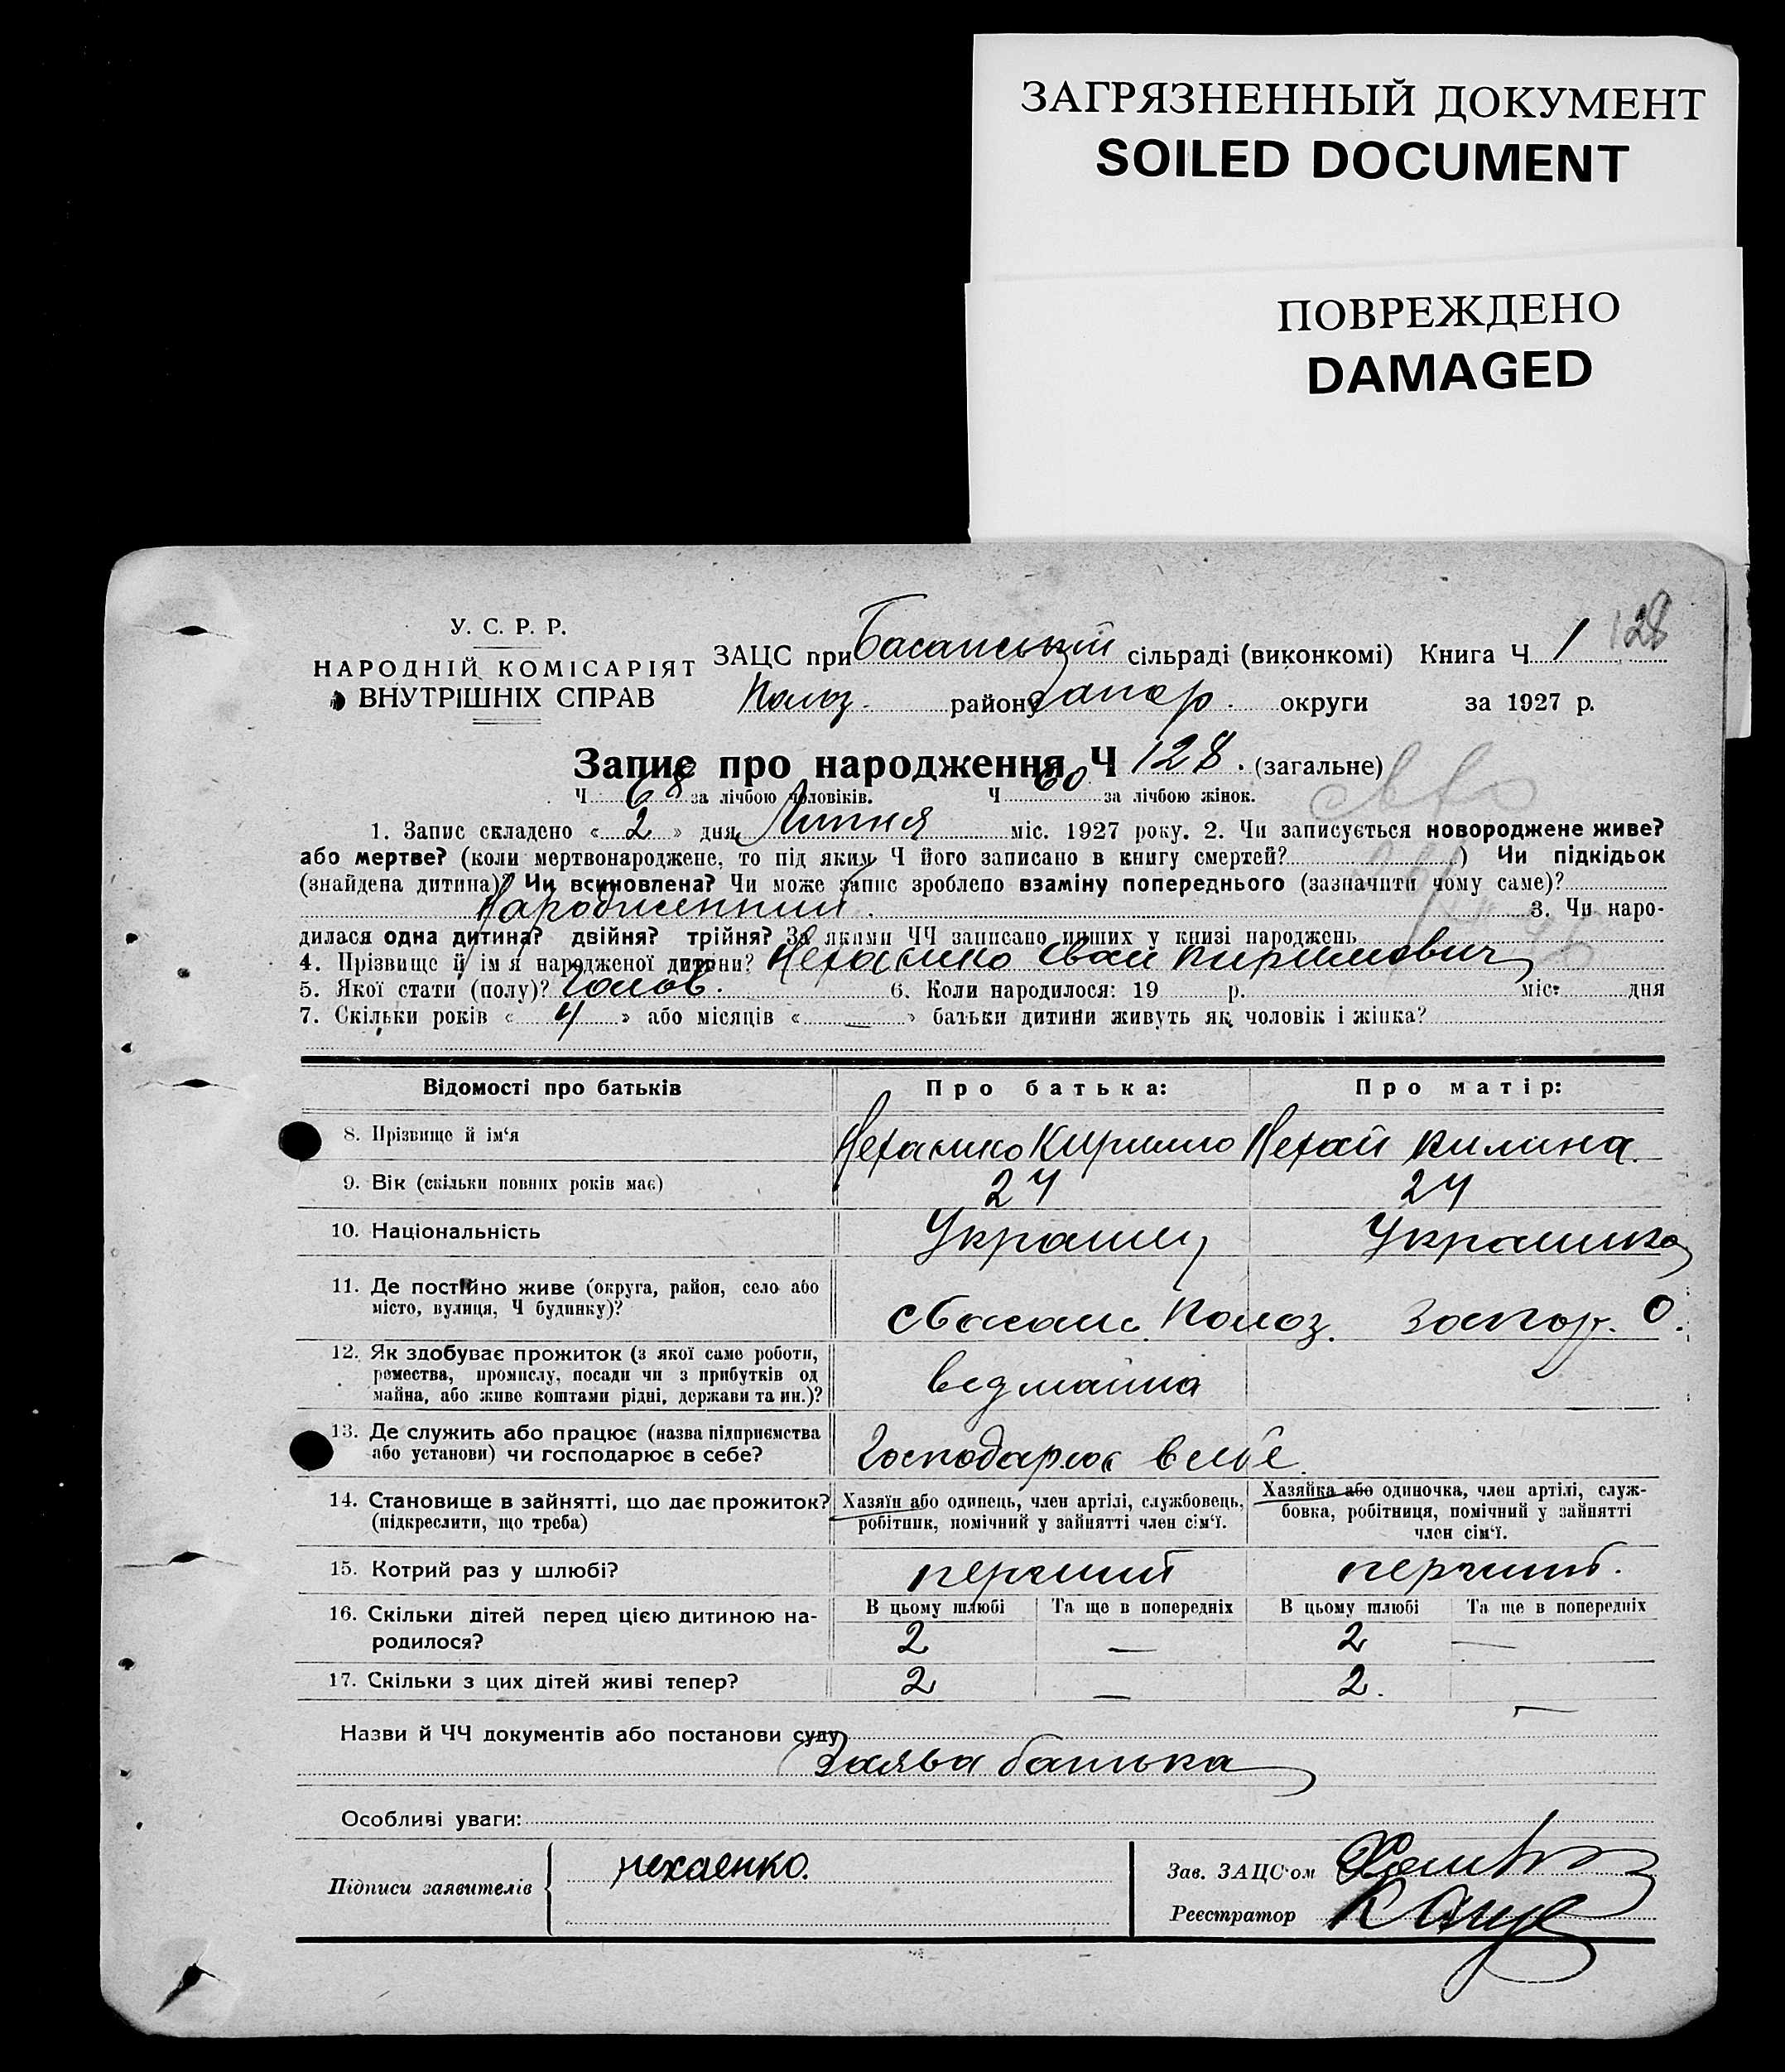 ЗАГРЯЗНЕННЫЙ ДОКУМЕНТ
SOILED DOCUMENT
ПОВРЕЖДЕНО
DAMAGED
128
У. С. Р. Р.
НАРОДНІЙ КОМІСАРІЯТ
ВНУТРІШНІХ СПРАВ
ЗАЦС при Басанській сільраді (виконкомі) Книга Ч 1
Полоз. району Запор. округи за 1927 р.
Запис про народження Ч 128. (загальне)
Ч 68 за лічбою чоловіків. Ч 60 за лічбою жінок.
1. Запис складено « 2 » дня Липня міс. 1927 року. 2. Чи записується новороджене живе?
або мертве? (коли мертвонароджене, то під яким Ч його записано в книгу смертей? ) Чи підкідьок
(знайдена дитина)? Чи всиновлена? Чи може запис зроблено взаміну попереднього (зазначити чому саме)?
Народженний. 3. Чи наро-
дилася одна дитина? двійня? трійня? За якими ЧЧ записано инших у книзі народжень
4. Прізвище й ім я народженої дитини? Нехаєнко Іван Кирилович
5. Якої стати (полу)? Чолов. 6. Коли народилося: 19 р. міс. дня
7. Скільки років « 4 » або місяців « — » батьки дитини живуть як чоловік і жінка?
Відомості про батьків Про батька: Про матір:
8. Прізвище й ім'я Нехаєнко Кирило Нехай Килина.
9. Вік (скільки повних років має) 24 24
10. Національність Українец Українка
11. Де постійно живе (округа, район, село або
місто, вулиця, Ч будинку)? с Басань. Полоз. Запор. О.
12. Як здобуває прожиток (з якої саме роботи,
ремества, промислу, посади чи з прибутків од
майна, або живе коштами рідні, держави та ин.)? від майна
13. Де служить або працює (назва підприємства
або установи) чи господарює в себе? Господарює в себе.
14. Становище в зайнятті, що дає прожиток?
(підкреслити, що треба)
Хазяїн або одинець, член артілі, службовець,
робітник, помічний у зайнятті член сім'ї.
Хазяйка або одиночка, член артілі, служ-
бовка, робітниця, помічний у зайнятті
член сім'ї.
15. Котрий раз у шлюбі? перший перший.
16. Скільки дітей перед цією дитиною на-
родилося?
В цьому шлюбі Та ще в попередніх В цьому шлюбі Та ще в попередніх
2 — 2 —
17. Скільки з цих дітей живі тепер? 2 — 2. —
Назви й ЧЧ документів або постанови суду
Заява батька
Особливі уваги:
Підписи заявителів нехаєнко.
Зав. ЗАЦС'ом
Реєстратор